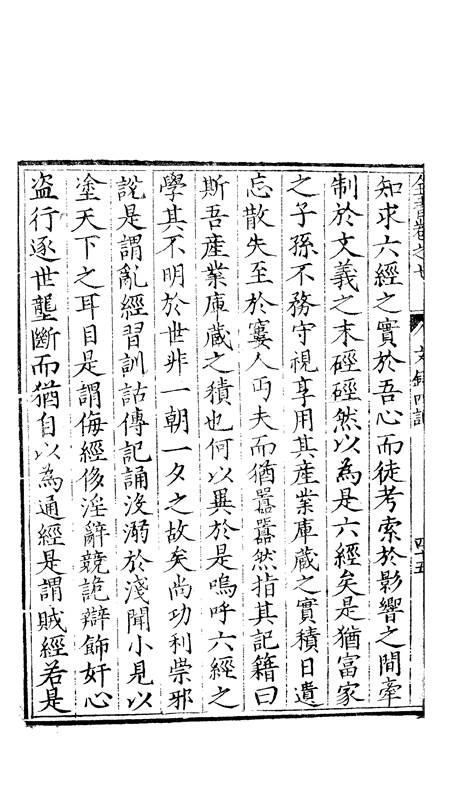 知求六經之實於吾心而徒考索於影響之間牽
制於文義之末硜硜然以為是六經矣是猶富家
之子孫不務守視享用其產業庫藏之實積日遺
忘散失至於窶人丐夫而猶囂囂然指其記籍曰
斯吾產業庫藏之積也何以異於是嗚呼六經之
學其不明於世非一朝一夕之故矣尚功利崇邪
說是謂亂經習訓詁傳記誦沒溺於淺聞小見以
塗天下之耳目是謂侮經侈淫辭競詭辯飾奸心
盜行逐世壟斷而猶自以為通經是謂賊經若是